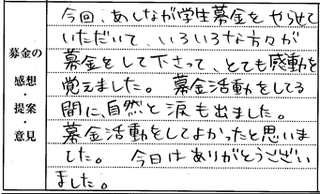 募金の
感想
・
提案
・
意見
今回、あしなが学生募金をやらせて
いただいて、いろいろな方々が
募金をして下さって、とても感動を
覚えました。募金活動をしてる
間に、自然と涙も出ました。
募金活動をしてよかったと思いま
した。今日はありがとうござい
ました。